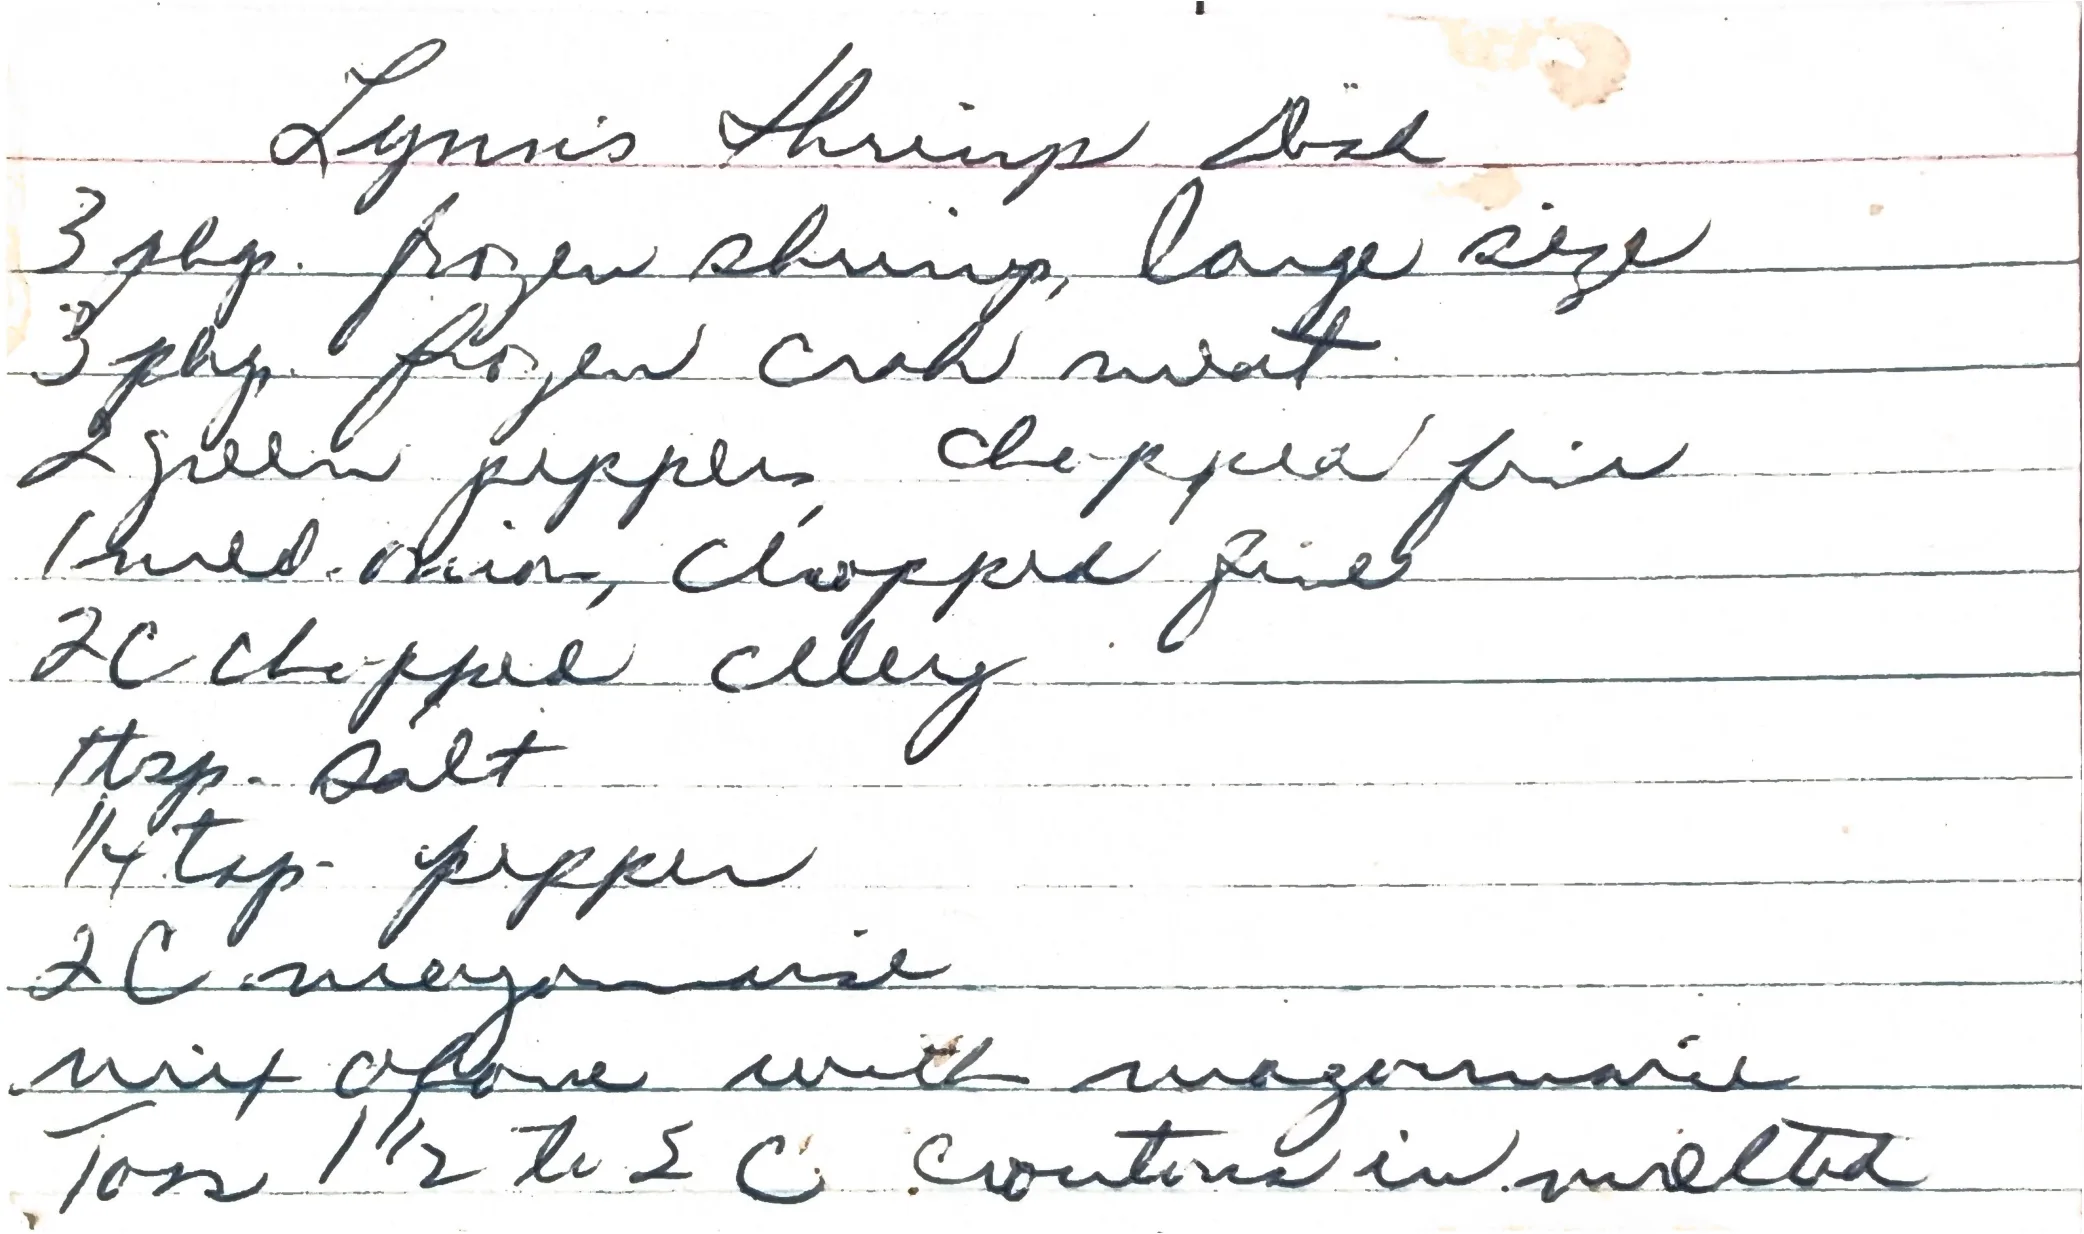 Lynn's Shrimp Dish
3 pkg. frozen shrimp, large size
3 pkg. frozen crab meat
2 green peppers, chopped fine
1 med. onion, chopped fine
2 C chopped celery
1 tsp. salt
1/4 tsp. pepper
2 C mayonnaise
mix above with mayonnaise
Toss 1 1/2 to 2 C croutons in melted